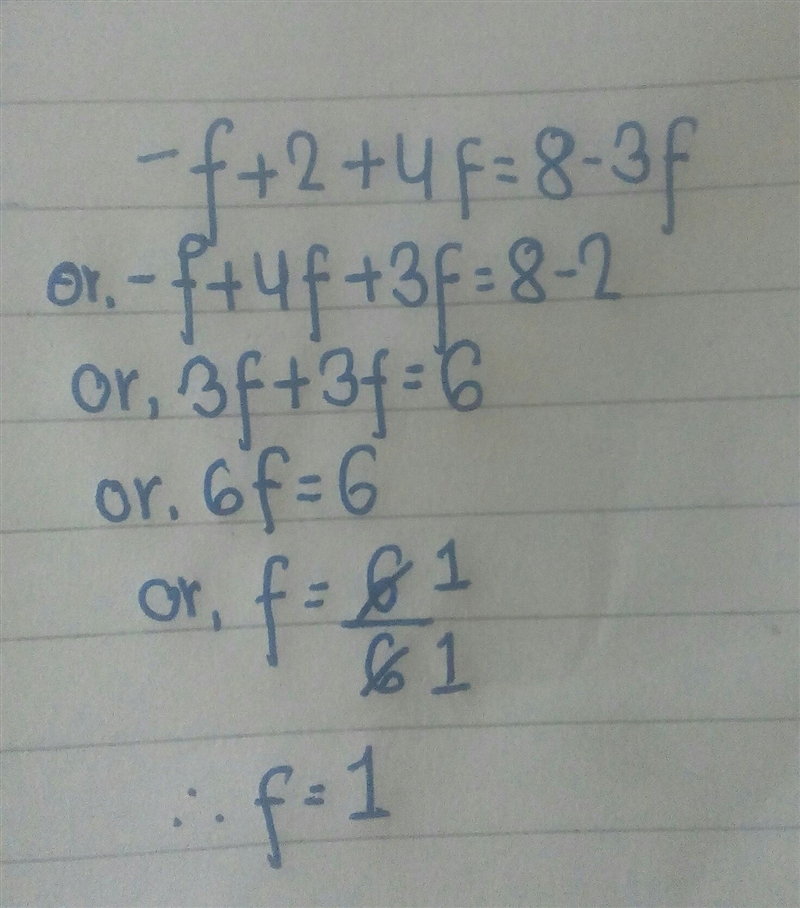 -f+2+4f=8-3f
or. -f+4f+3f=8-2
or, 3f+3f=6
or. 6f=6
or, f= 6 1
6 1
∴ f=1